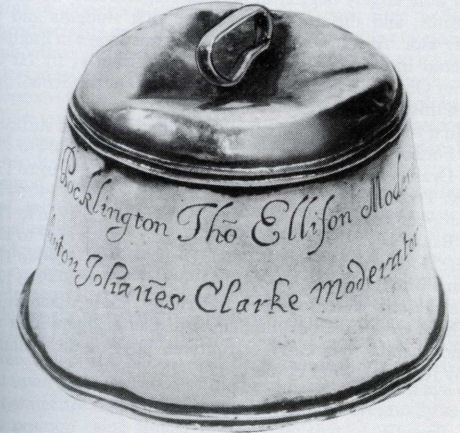 Pocklington Thõ Ellison Moder
Johañes Clarke Moderator